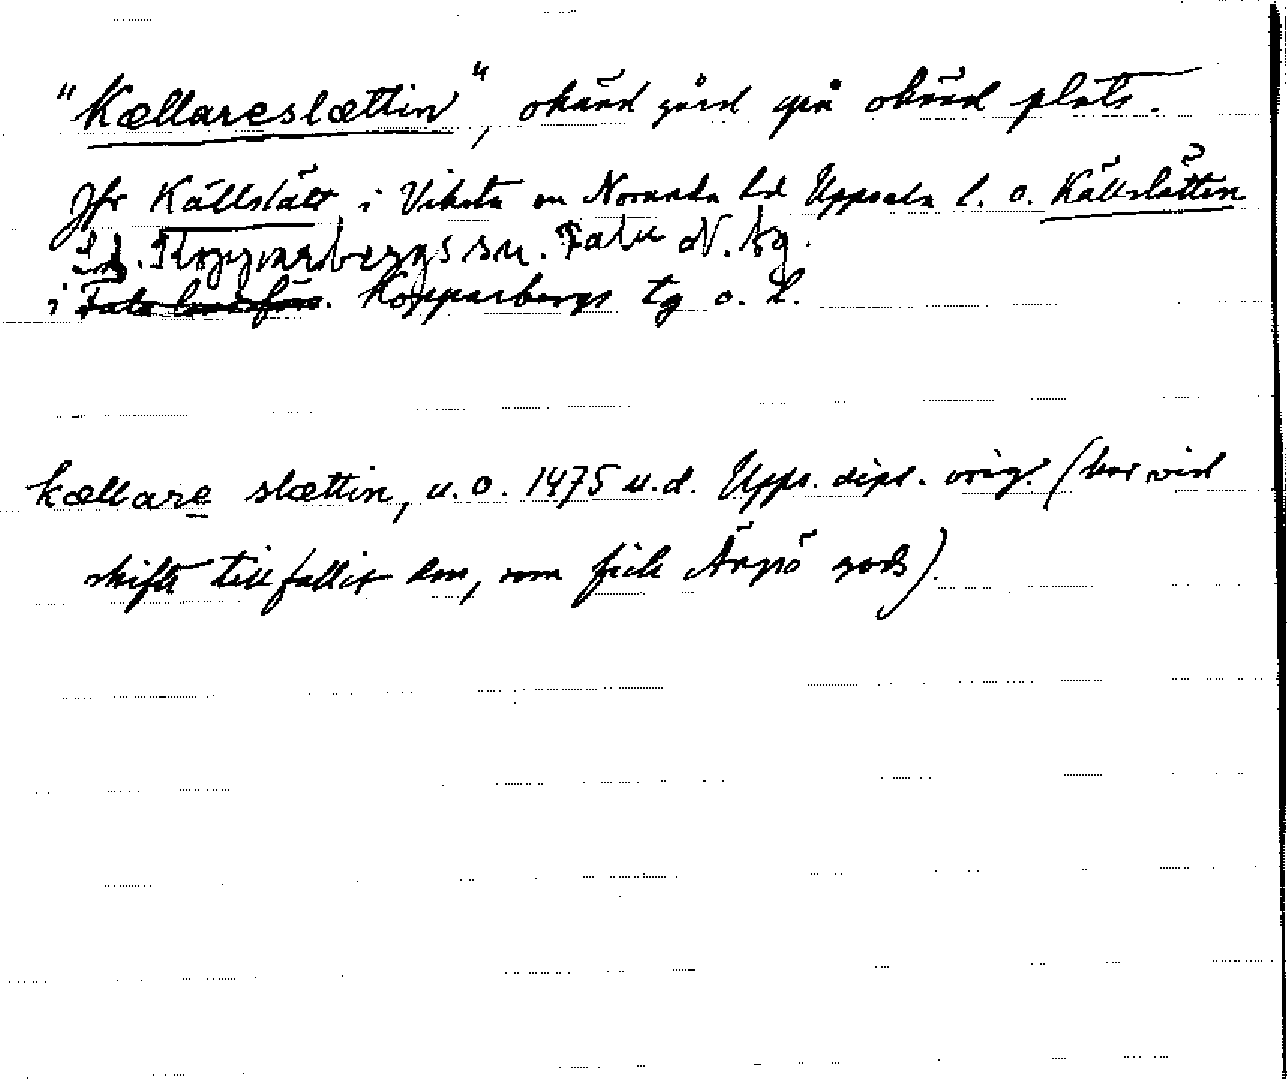 "Kællareslættin", okänd gård på okänd plats.
Jfr Källslätt i Viksta sn Norunda hd Uppsala l. o. Källslätten
St. Kopparbergs sn. Falu N. tg.
i Falu landsförs. Kopparbergs tg o. l.
kællare slættin, u.o. 1475 u.d. Upps. dipl. orig. (har vid
skifte tillfallit den, som fick Ärpö gods).